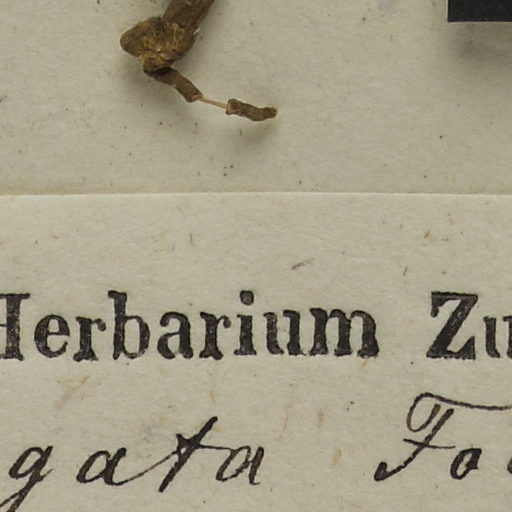 Herbarium Zu
gata Fo